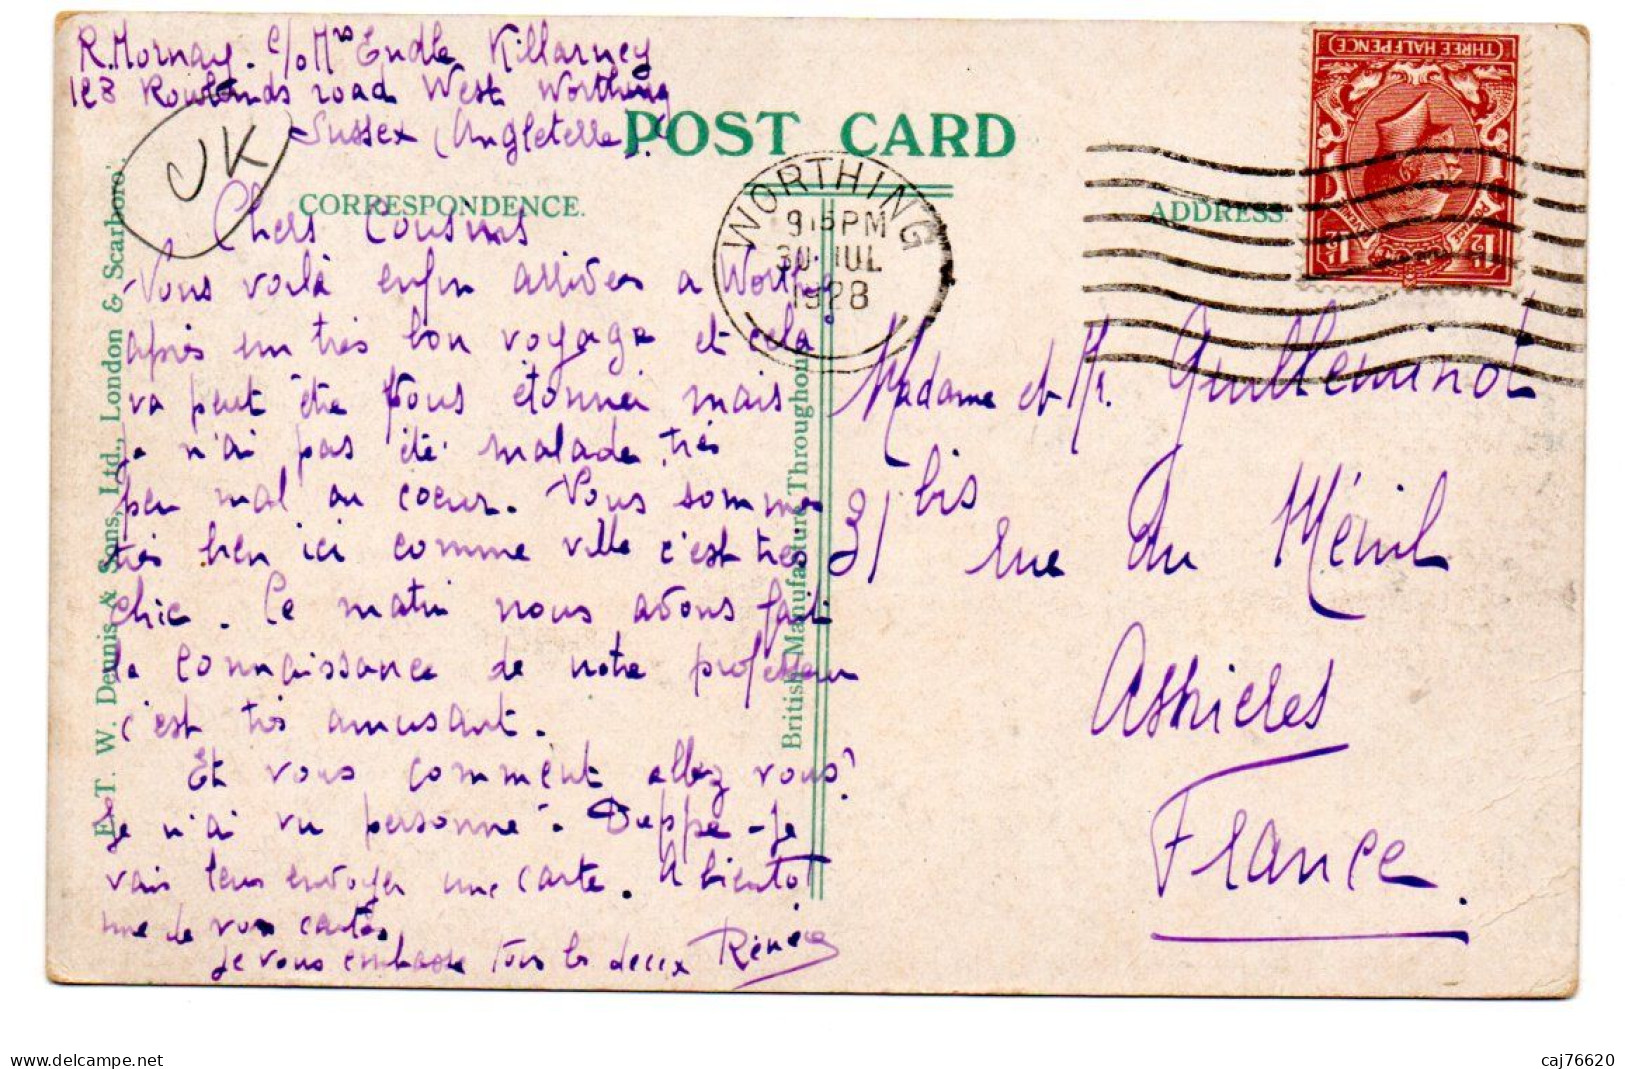 R. Mornay. c/o Mrs Endle Killarney
123 Rowlands road West Worthing
Sussex (Angleterre).
UK
POST CARD
CORRESPONDENCE.
ADDRESS
WORTHING
9 15 PM
30 JUL
1928
(THREE HALFPENCE)
Chers Cousins
Nous voilà enfin arrivées a Worthing
après un très bon voyage et cela
va peut être vous étonner mais
je n'ai pas été malade, très
peu mal au coeur. Nous sommes
très bien ici comme ville c'est très
chic. Ce matin nous avons fait
la connaissance de notre professeur
c'est très amusant.
Et vous comment allez vous?
Je n'ai vu personne à Dieppe - Je
vais leur envoyer une carte. A bientot
une de vos cartes
Je vous embrasse tous les deux Renée
Madame et Mr. Guilleminot
31 bis rue du Ménil
Asnieres
France.
E. T. W. Dennis & Sons, Ltd., London & Scarboro'.
British Manufacture Throughout
caj76620
www.delcampe.net